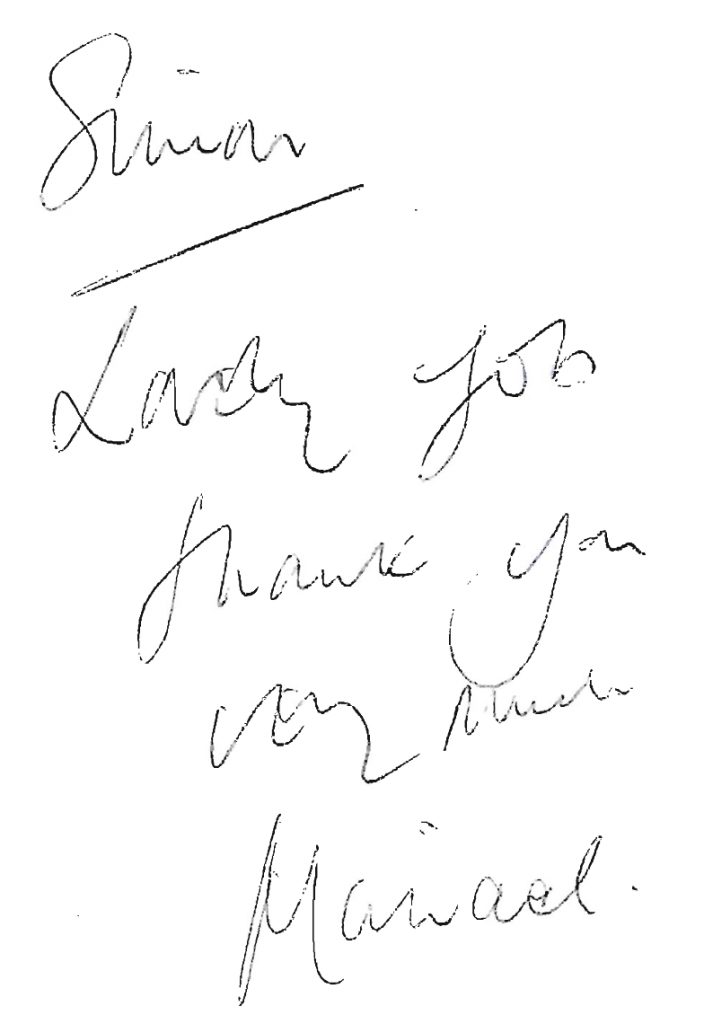 Simon
Lovely job
thank you
very much
Mairead.